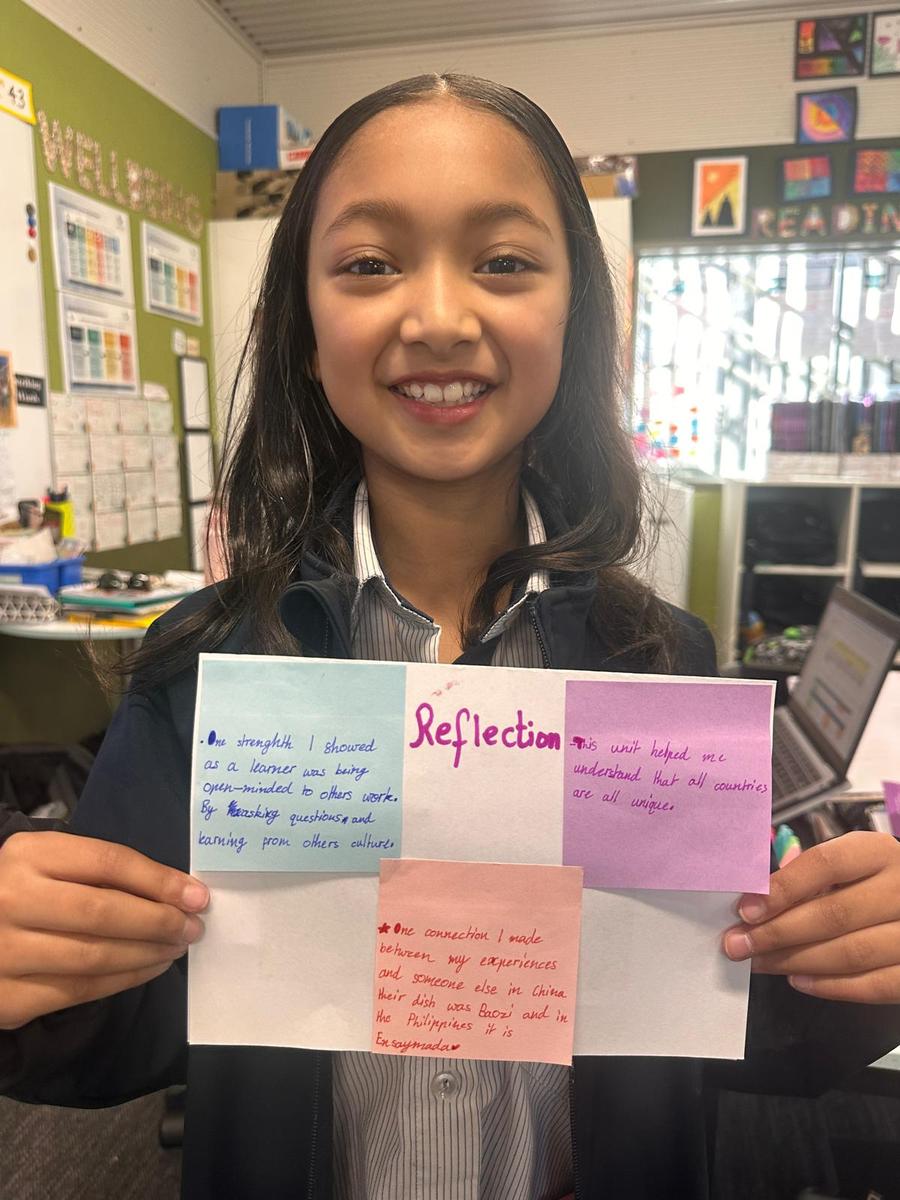 43
WELLBEING
READIN
Reflection
• One strenghth I showed
as a learner was being
open-minded to others work.
By asking questions, and
learning from others culture.
-This unit helped me
understand that all countries
are all unique.
★ One connection I made
between my experiences
and someone else in China
their dish was Baozi and in
the Philippines it is
Ensaymada